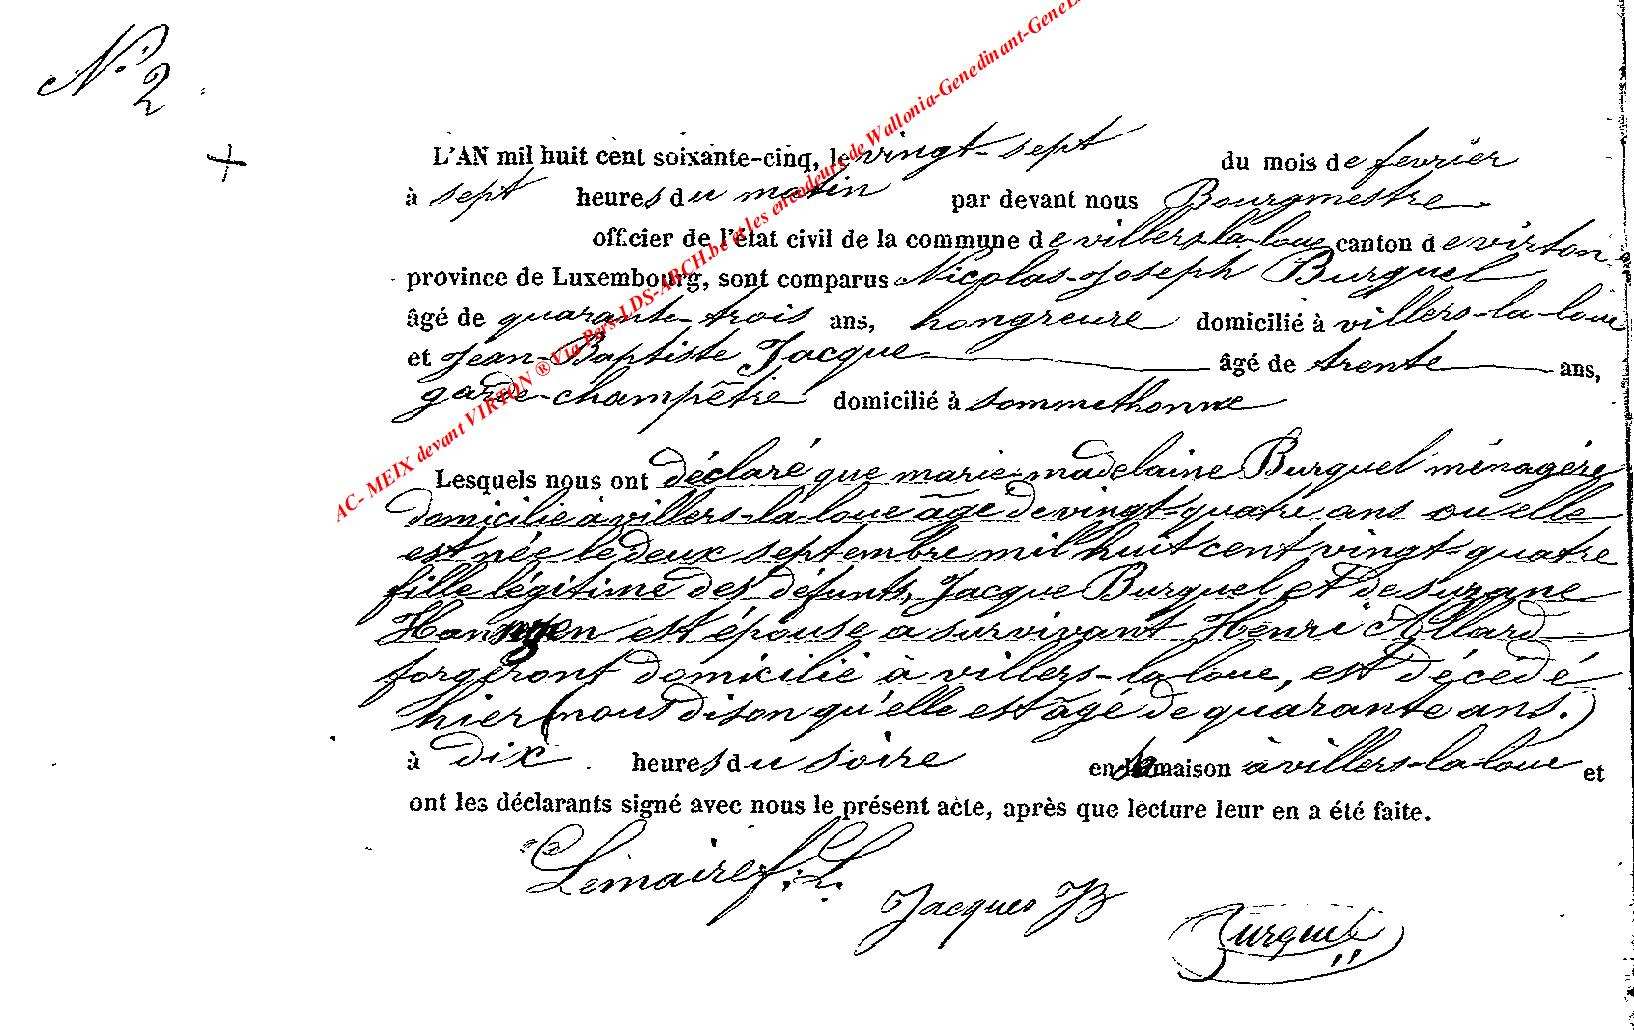 N.º 2
L'AN mil huit cent soixante-cinq, le vingt-sept du mois de fevrier
à sept heures du matin par devant nous Bourgmestre
officier de l'état civil de la commune de villers-la-loue canton de virton
province de Luxembourg, sont comparus Nicolas-Joseph Burquel
âgé de quarante-trois ans, hongreure domicilié à villers-la-loue
et Jean-Baptiste Jacque âgé de trente ans,
garde-champêtre domicilié à sommethonne
Lesquels nous ont déclaré que marie-madelaine Burquel ménagére
domicilié à villers-la-loue âgé de vingt-quatre ans ou elle
est née le deux septembre mil huit cent vingt-quatre
fille légitime des défunts, Jacque Burquel et de suzane
est épouse a survivant Henri Allard
forgeront domicilié à villers-la-loue, est décédé
hier (nous dison qu'elle est âgé de quarante ans.)
à dix heures du soire en sa maison à villers-la-loue et
ont les déclarants signé avec nous le présent acte, après que lecture leur en a été faite.
Lemaire f. L.
Jacques JB
Burquel
AC- MEIX devant VIRTON ® Via Pers-LDS-ARCH.be et les encodeurs de Wallonia-Genedinant-GeneL